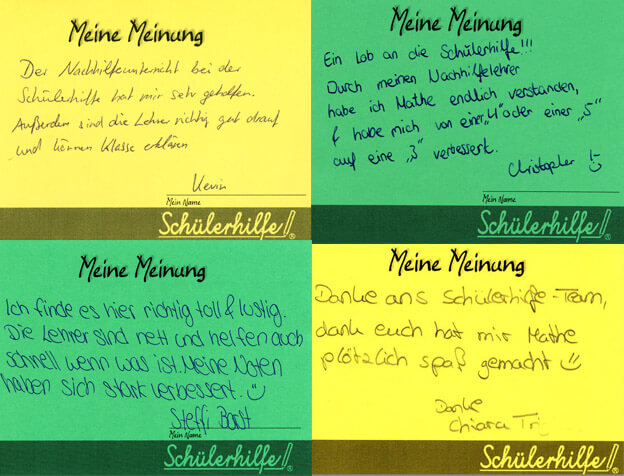 Meine Meinung
Der Nachhilfeunterricht bei der
Schülerhilfe hat mir sehr geholfen.
Außerdem sind die Lehrer richtig gut drauf
und können Klasse erklären
Kevin
Mein Name
Schülerhilfe!®
Meine Meinung
Ein Lob an die Schülerhilfe!!!
Durch meinen Nachhilfelehrer
habe ich Mathe endlich verstanden,
& habe mich von einer „4" oder einer „5"
auf eine „3" verbessert.
Christopher :-)
Mein Name
Schülerhilfe!®
Meine Meinung
Ich finde es hier richtig toll & lustig.
Die Lehrer sind nett und helfen auch
schnell wenn was ist. Meine Noten
haben sich stark verbessert. :)
Steffi
Mein Name
Schülerhilfe!®
Meine Meinung
Danke ans Schülerhilfe-Team,
dank euch hat mir Mathe
plötzlich spaß gemacht :)
Danke
Chiara
Schülerhilfe!®